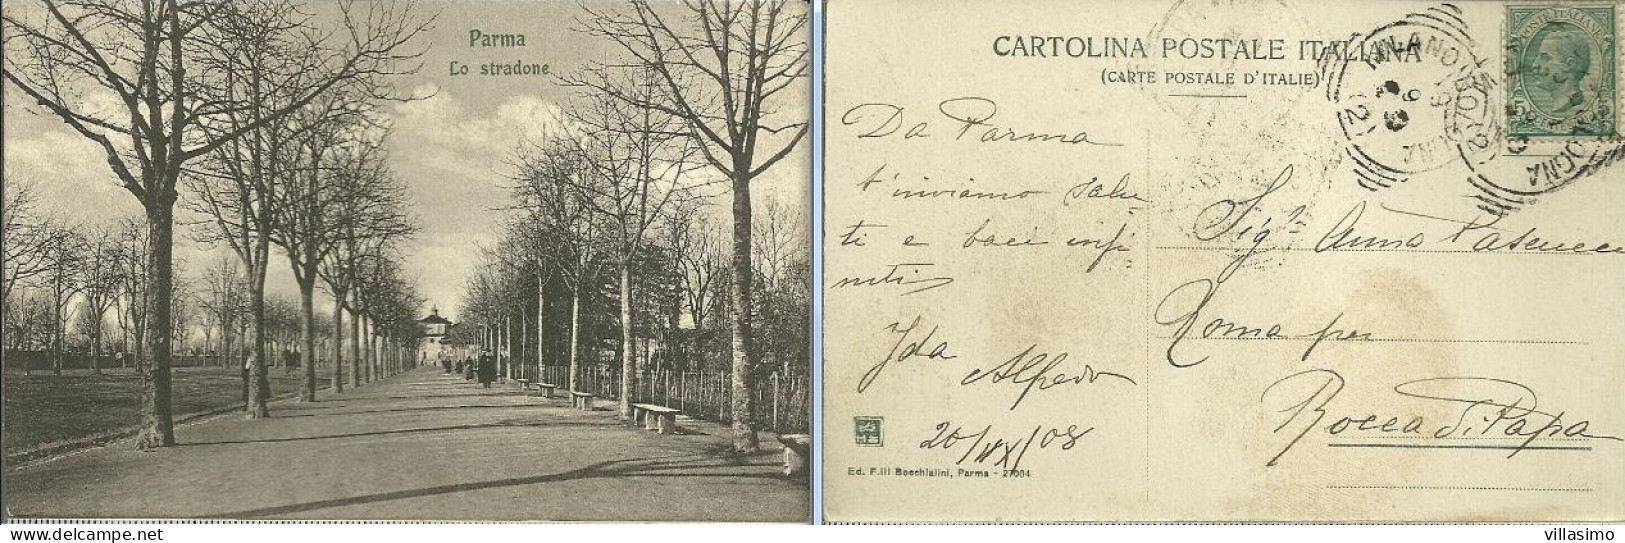 Parma
Lo stradone
CARTOLINA POSTALE ITALIANA
(CARTE POSTALE D'ITALIE)
POSTE ITALIANE
MILANO
Da Parma
t'inviamo salu-
ti e baci infi
niti
Ida
Alfredo
Sigra Anna Pascucci
Roma per
Rocca di Papa
Ed. F.lli Bocchialini, Parma - 27064
villasimo